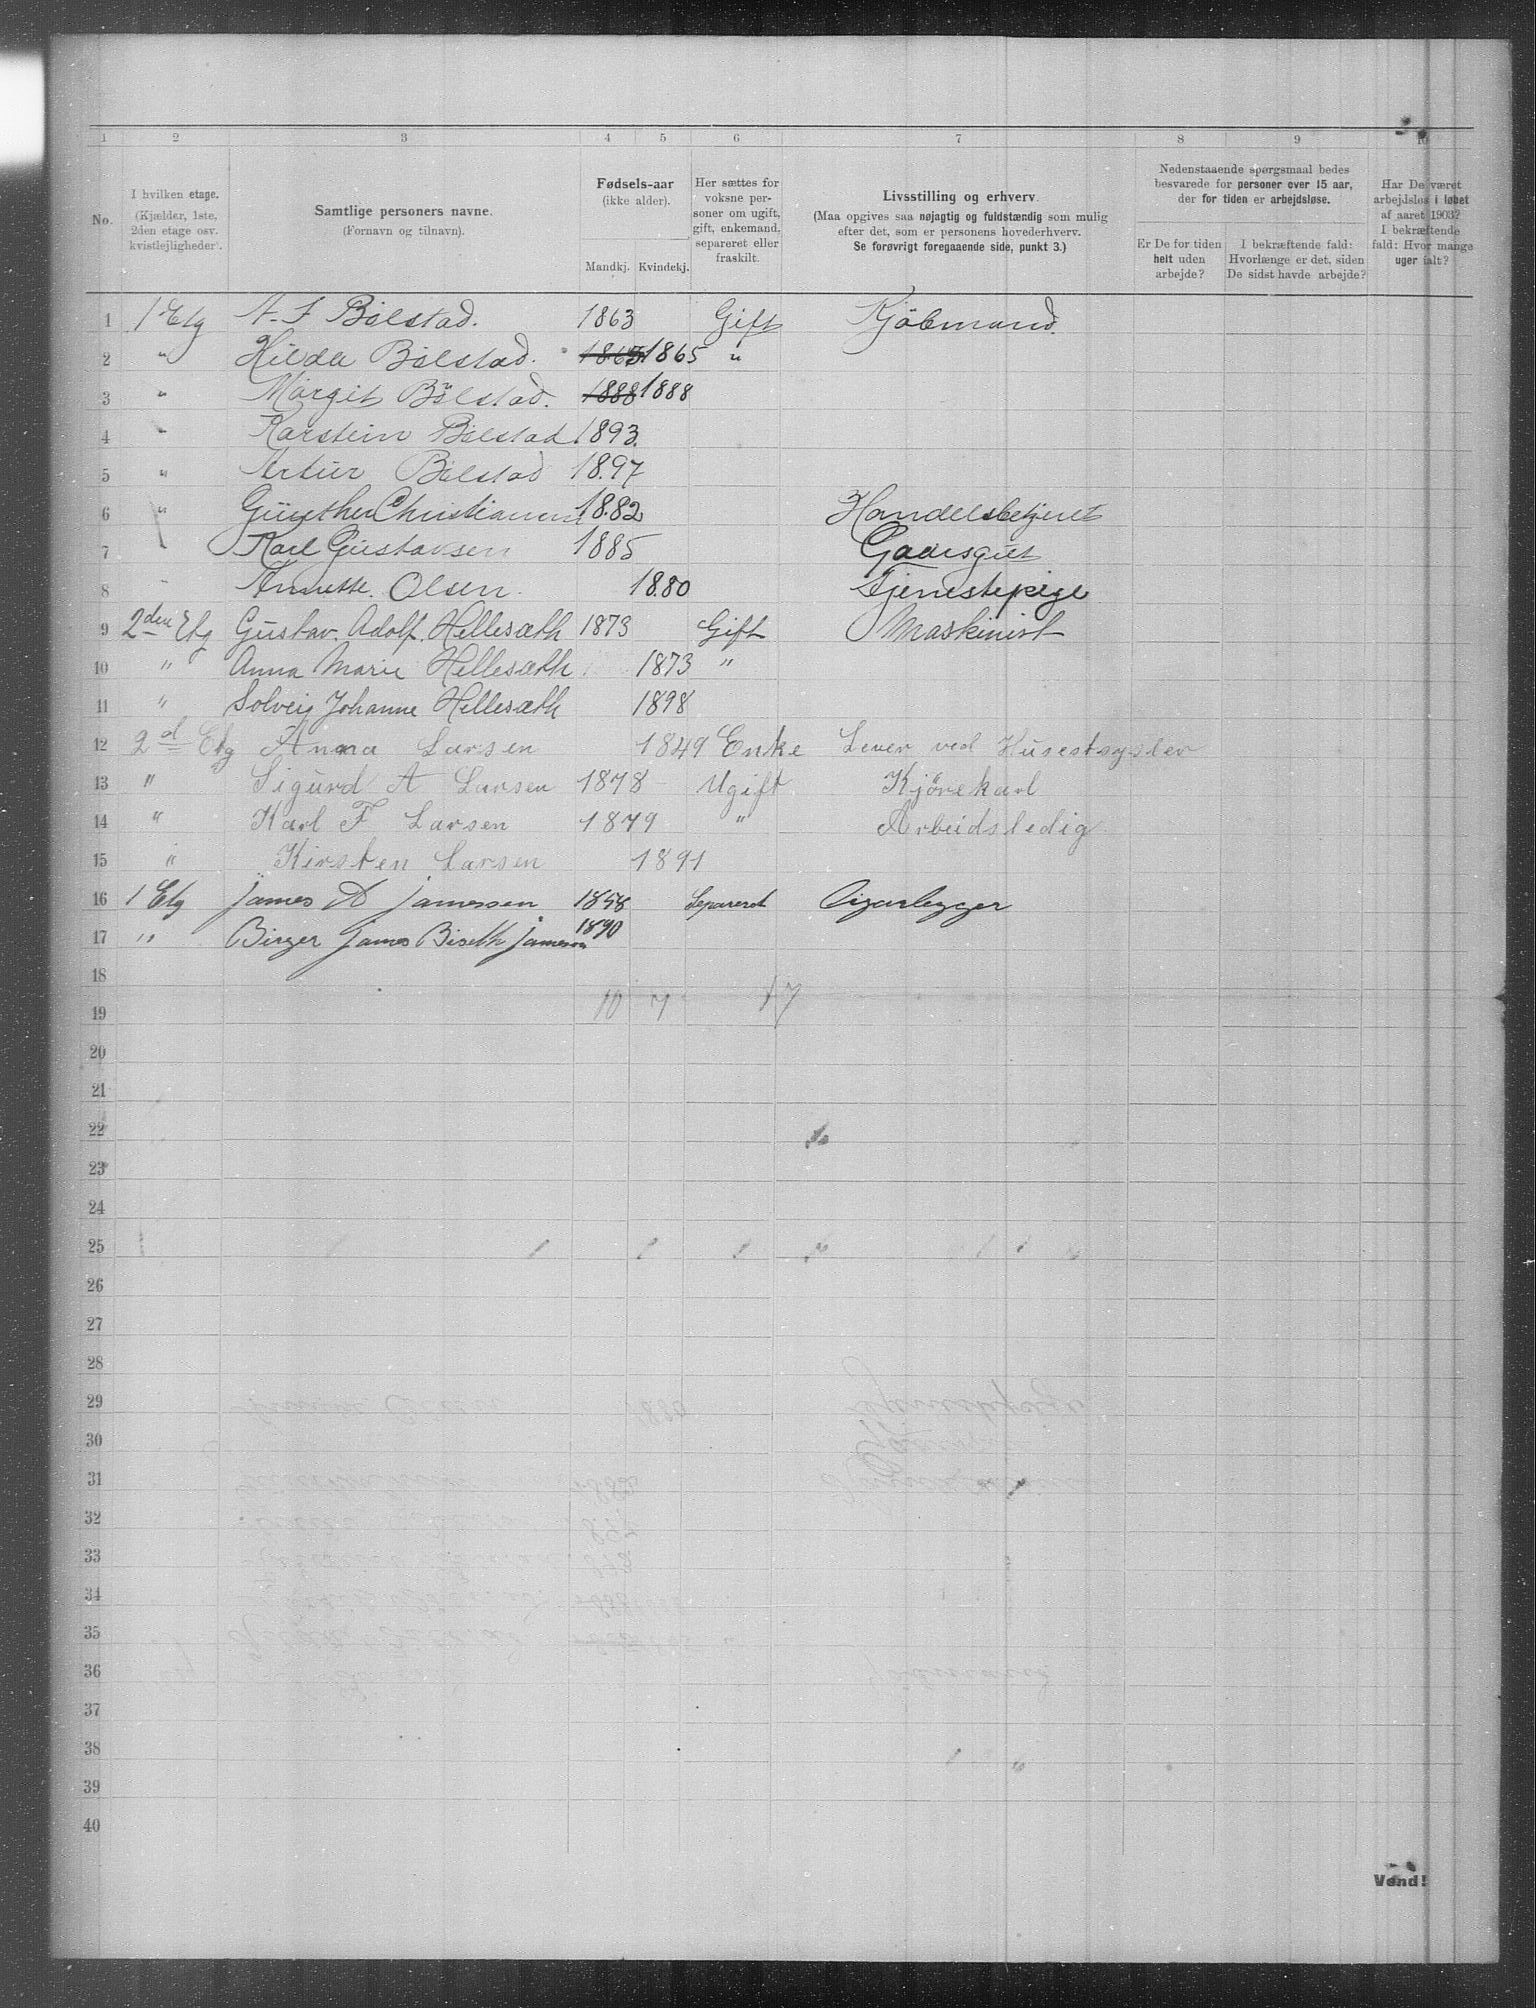 1 2 3 4 5 6 7 8 9 10
No.
I hvilken etage.
(Kjælder, 1ste,
2den etage osv.
kvistlejligheder).
Samtlige personers navne.
(Fornavn og tilnavn).
Fødsels-aar
(ikke alder).
Mandkj. Kvindekj.
Her sættes for
voksne per-
soner om ugift,
gift, enkemand,
separeret eller
fraskilt.
Livsstilling og erhverv.
(Maa opgives saa nøjagtig og fuldstændig som mulig
efter det, som er personens hovederhverv.
Se forøvrigt foregaaende side, punkt 3.)
Nedenstaaende spørgsmaal bedes
besvarede for personer over 15 aar,
der for tiden er arbejdsløse.
Er De for tiden
helt uden
arbejde?
I bekræftende fald:
Hvorlænge er det, siden
De sidst havde arbejde?
Har De været
arbejdsløs i løbet
af aaret 1903?
I bekræftende
fald: Hvor mange
uger ialt?
1 1 Etg A. J Bölstad. 1863 Gift Kjöbmand.
2 " Hilda Bölstad. 1865 1865 "
3 " Margit Bölstad. 1888 1888
4 " Karstein Bölstad 1893.
5 " Artur Bölstad 1897
6 " Günther Christiansen 1882 Handelsbetjent
7 Karl Gustavsen 1885 Gaardsgut
8 Annette Olsen. 1880 Tjenestepige
9 2den Etg Gustav Adolf Hellesæth 1873 Gift Maskinist
10 " Anna Marie Hellesæth 1873 "
11 " Solveig Johanne Hellesæth 1898
12 2d Etg Anna Larsen 1849 Enke Lever ved Husestsysler
13 " Sigurd A Larsen 1878 Ugift Kjörekarl
14 " Karl F Larsen 1879 " Arbeidsledig
15 " Kirsten Larsen 1891
16 1 Etg James A Jamessen 1858 Separeret Cigarlegger
17 " Birger James Biseth Jameson 1890
18
10 7 17
19
20
21
22
23
24
25
26
27
28
29
30
31
32
33
34
35
36
37
38
39
40
Vend!